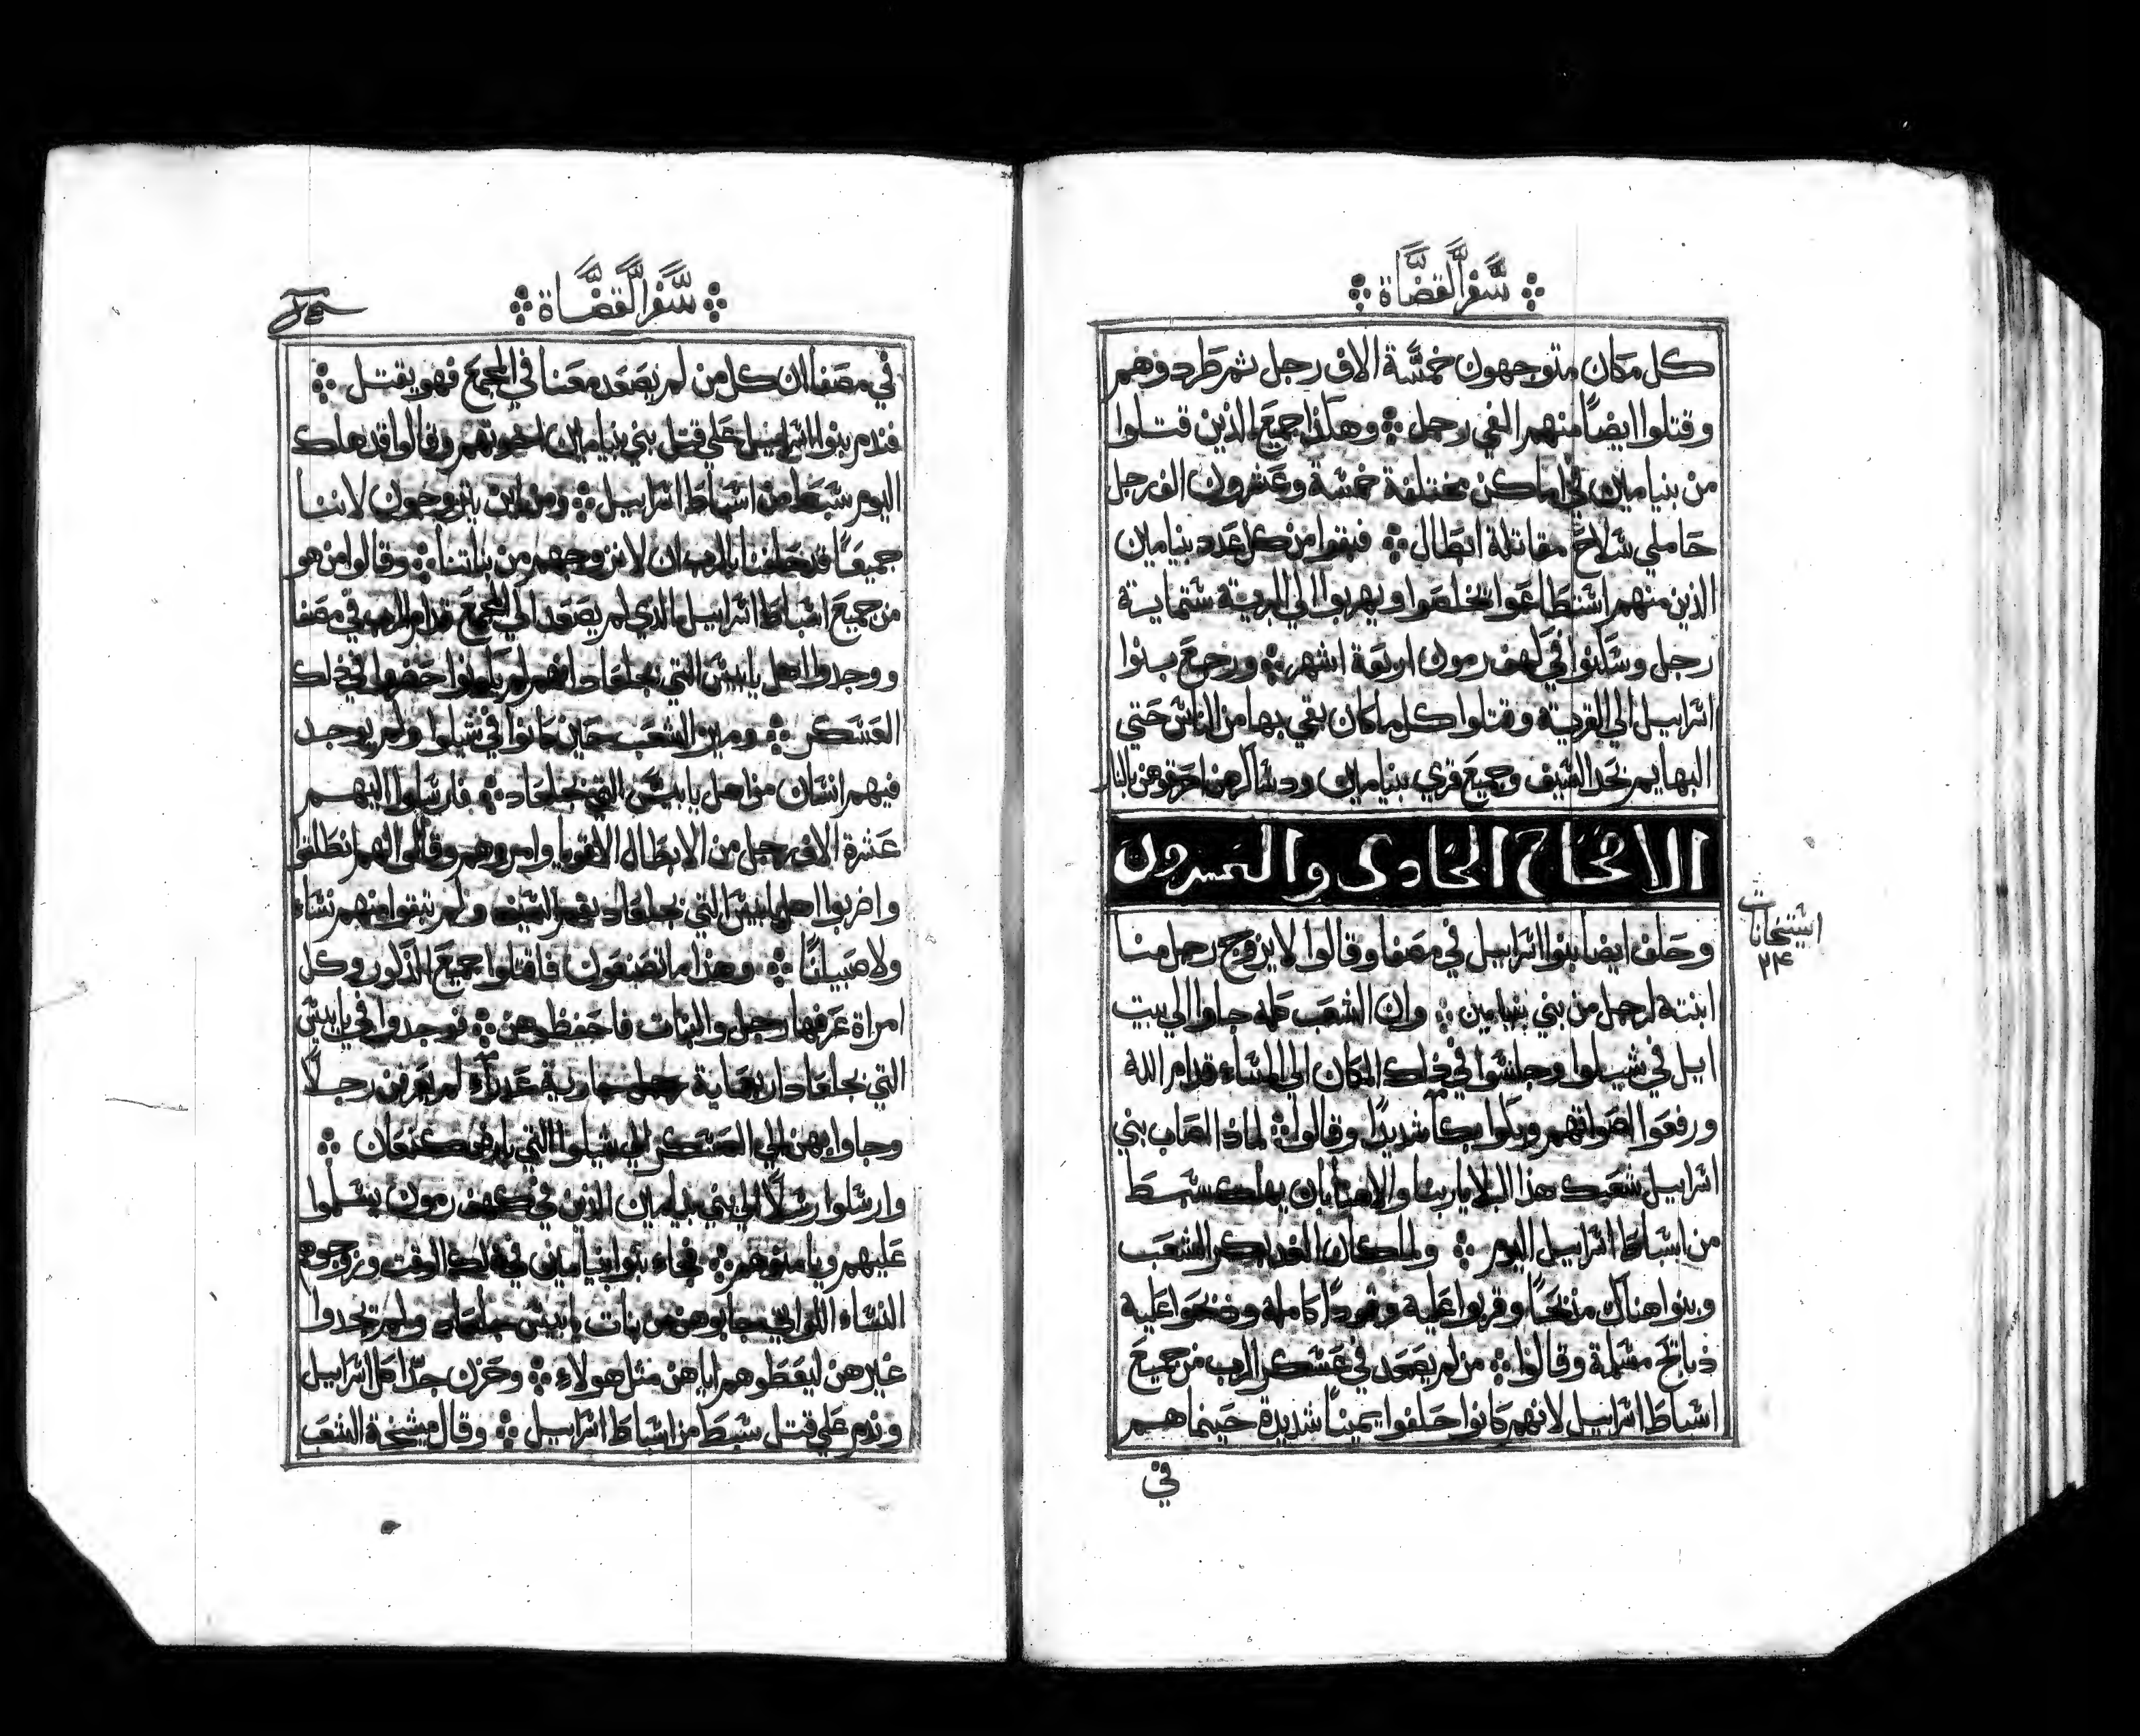 سفر القضاة
كل مكان متوجهون خمسة الاف رجل ثم طردوهم
وقتلوا ايضًا منهم الفي رجل وهذا جميع الذين قتلوا
من بنيامين في اماكن مختلفة خمسة وعشرون الف رجل
حاملي سلاح مقاتلة ابطال فبقوا من كل عدد بنيامين
الذين منهم استطاعوا تخلصوا ويهربوا الي البرية ستماية
رجل وسكنوا في كهف رمون اربعة اشهر ورجع بنوا
اسراييل الي القرية وقتلوا كل ما كان بقي بها من الناس حتي
البهايم بحد السيف وجميع قري بنيامين ودساكرهن احرقوهن بالنار
الاصحاح الحادى والعسرون
استيخانات
٢٤
وحلف ايضا بنوا اسراييل في مصفا وقالوا لا يزوج رجل منا
ابنته لرجل من بني بنيامين وان الشعب كله جاوا الي بيت
ايل في شيلوا وجلسوا في ذلك المكان الي المساء قدام الله
ورفعوا اصواتهم وبكوا بكآ شديدًا وقالوا لماذا اصاب بني
اسراييل شعبك هذا البلا يا ربنا والاهنا بان يهلك سبط
من اسباط اسراييل اليوم ولما كان الغد ابكر الشعب
وبنوا هناك مذبحًا وقربوا عليه وقودًا كاملة وذبحوا عليه
ذبايح مسلمة وقالوا من لم يصعد في عسكر الرب من جميع
اسباط اسراييل لانهم كانوا حلفوا يمينًا شديدة حينما هم
في
سفر القضاة
في مصفا ان كل من لم يصعد معنا في المجمع فهو يقتل
فندم بنوا اسراييل علي قتل بني بنيامين اخوتهم وقالوا قد هلك
اليوم سبط من اسباط اسراييل ومن اين يتزوجون لاننا
جميعًا قد حلفنا بالرب ان لا نزوجهم من بناتنا وقالوا من هو
من جميع اسباط اسراييل الذي لم يصعد الي المجمع قدام الرب في مصفا
ووجدوا اهل يابيس التي بجلعاد انهم لم يكونوا حضروا في ذلك
العسكر ومن الشعب حين كانوا في شيلوا ولم يوجد
فيهم انسان من اهل يابيس التي بجلعاد فارسلوا اليهم
عشرة الاف رجل من الابطال الاقويا وامروهم وقالوا لهم انطلقوا
واضربوا اهل يابيس التي بجلعاد بفم السيف ولم تبقوا منهم نساء
ولا صبيانًا وهذا ما تصنعون فاقتلوا جميع الذكور وكل
امراة عرفها رجل والبنات فاحفظوهن فوجدوا في يابيس
التي بجلعاد اربعماية جارية عدراء لم يعرفن رجلاً
وجاوا بهن الي العسكر الي شيلوا التي بارض كنعان
وارسلوا رسلاً الي بني بنيامين الذين في كهف رمون يسلموا
عليهم ويامنوهم فجاء بنوا بنيامين في ذلك الوقت وزوجوهم
النساء اللواتي جابوهن من بنات يابيس جلعاد ولم تجدوا
غيرهن ليعطوهم اياهن مثل هولاء وحزن جدًا كل اسراييل
وندم علي قتل سبط من اسباط اسراييل وقال ميشخة الشعب